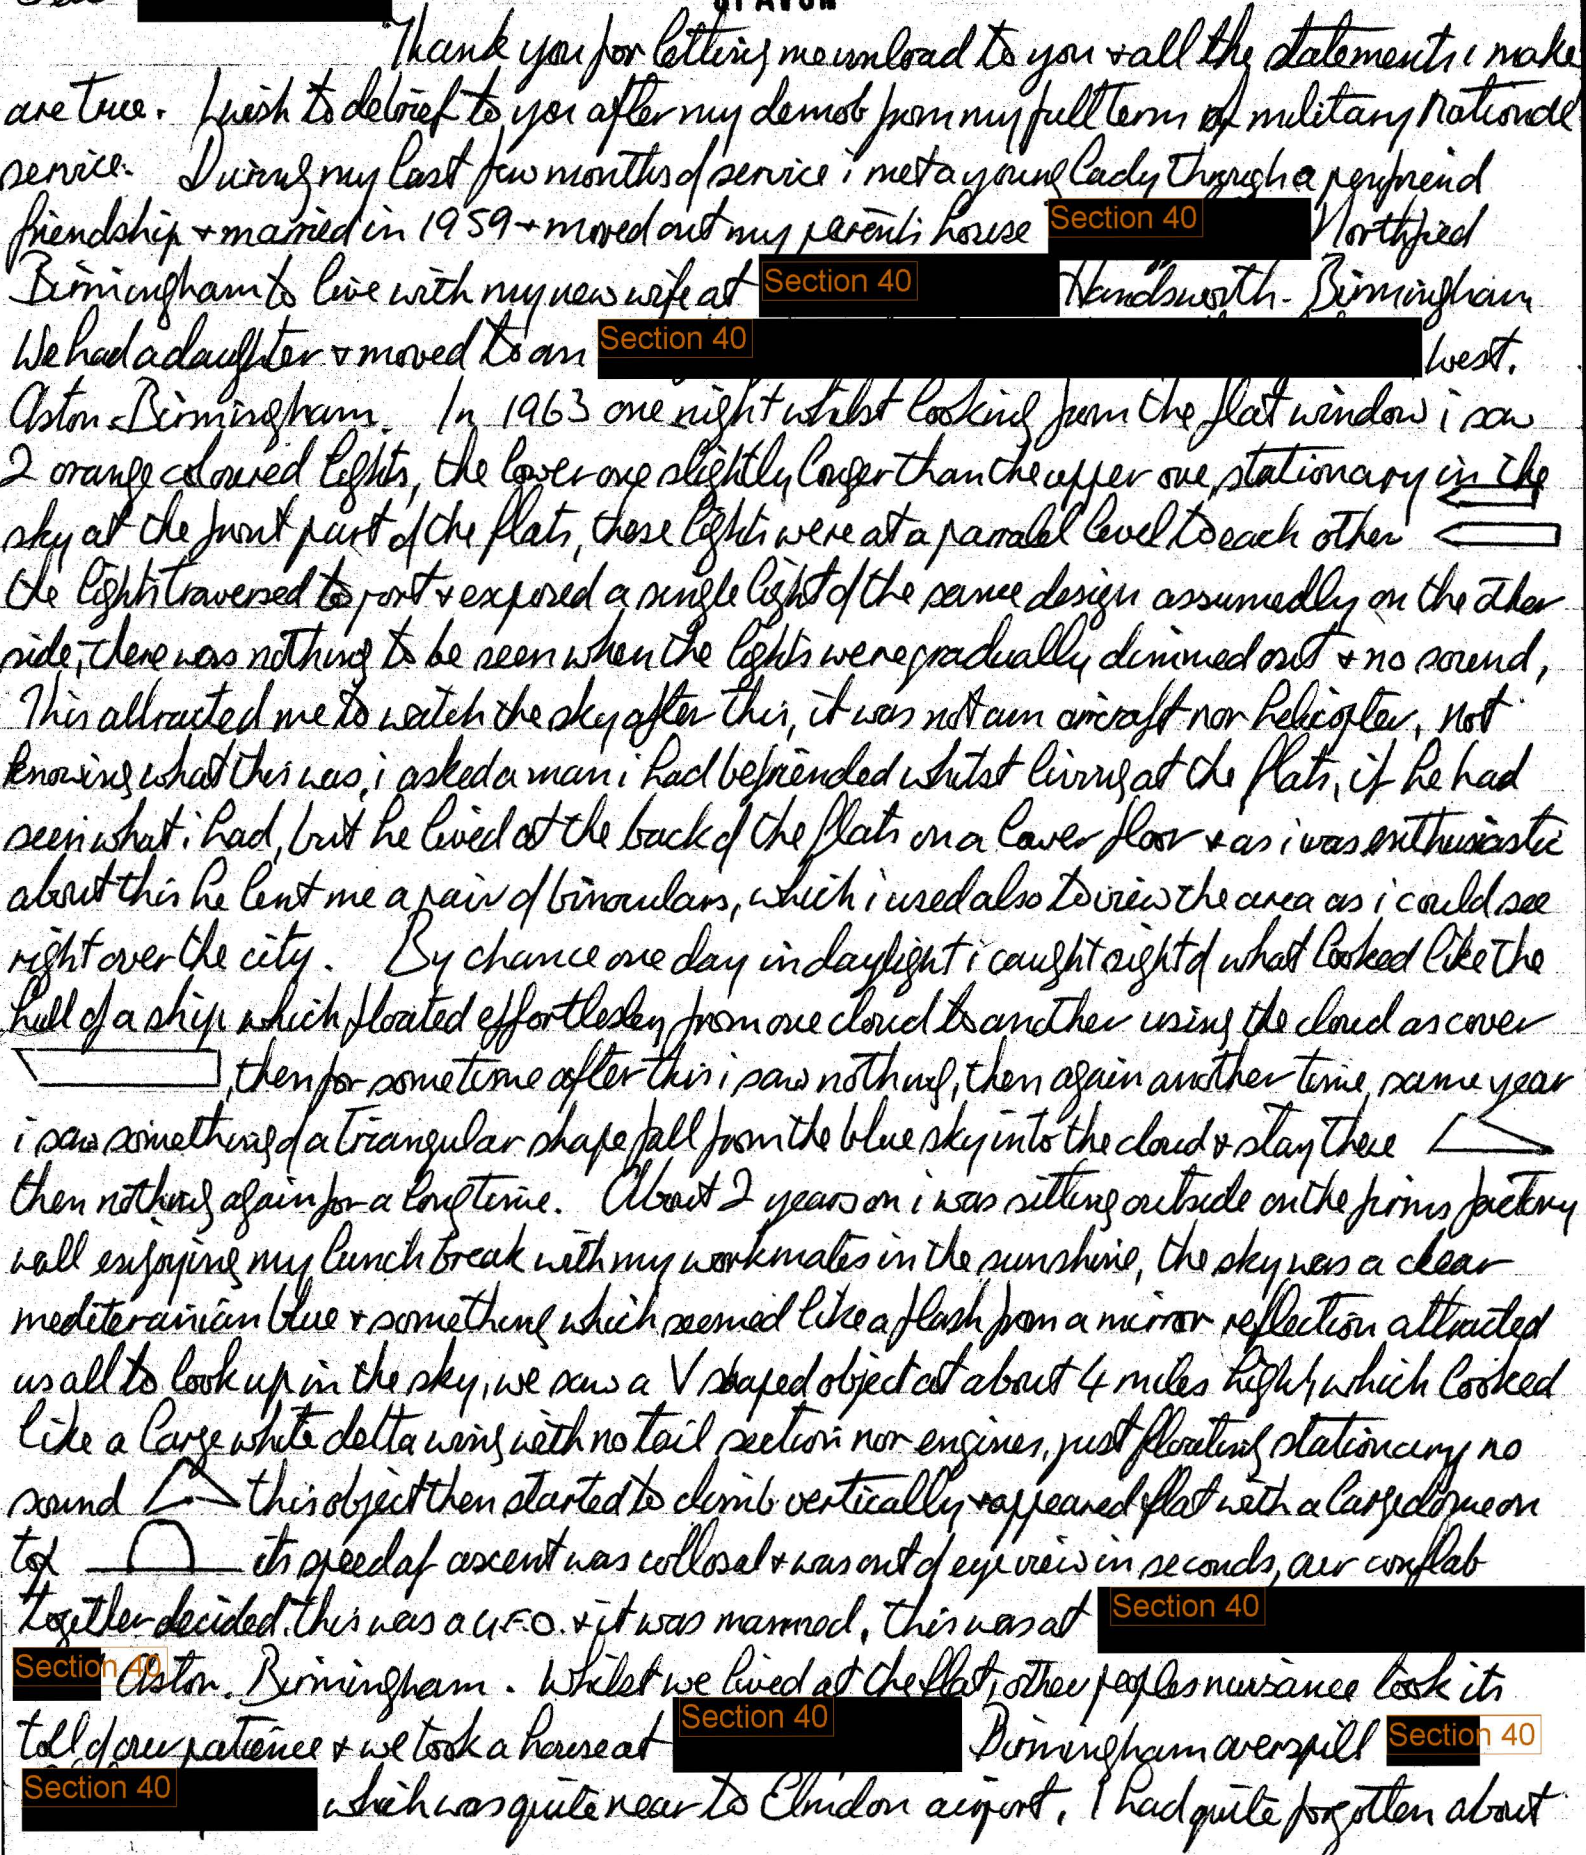 Thank you for letting me unload to you & all the statements i make
are true. I wish to debrief to you after my demob from my full term of military National
service. During my last few months of service i met a young lady through a penfriend
friendship & married in 1959 & moved out my parents house Section 40 Northfied
Birmingham to live with my new wife at Section 40 Handsworth - Birmingham
We had a daughter & moved to an Section 40 west.
Aston - Birmingham. In 1963 one night whilst looking from the flat window i saw
2 orange coloured lights, the lower one slightly longer than the upper one, stationary in the
sky at the front part of the flats, these lights were at a parralel level to each other
the lights traversed to port & exposed a single light of the same design assumedly on the other
side, there was nothing to be seen when the lights were gradually dimmed out & no sound,
This attracted me to watch the sky after this, it was not an aircraft nor helicopter, not
knowing what this was, i asked a man i had befriended whilst living at the flats, if he had
seen what i had, but he lived at the back of the flats on a lower floor & as i was enthusiastic
about this he lent me a pair of binoculars, which i used also to view the area as i could see
right over the city. By chance one day in daylight i caught sight of what looked like the
hull of a ship which floated effortlesley from one cloud to another using the cloud as cover
, then for sometime after this i saw nothing, then again another time, same year
i saw something of a triangular shape fall from the blue sky into the cloud & stay there
then nothing again for a long time. About 2 years on i was sitting outside on the firms factory
wall enjoying my lunch break with my workmates in the sunshine, the sky was a clear
mediteranian blue & something which seemed like a flash from a mirror reflection attracted
us all to look up in the sky, we saw a V shaped object at about 4 miles high, which looked
like a large white delta wing with no tail section nor engines, just floating stationary no
sound this object then started to climb vertically & appeared flat with a large dome on
top its speed of ascent was collosal & was out of eye view in seconds, our conflab
together decided this was a U.F.O. & it was manned, this was at Section 40
Section 40 Aston. Birmingham. Whilst we lived at the flat, other peoples nuisance took its
toll of our patience & we took a house at Section 40 Birmingham overspill Section 40
Section 40 which was quite near to Elmdon airport. I had quite forgotten about